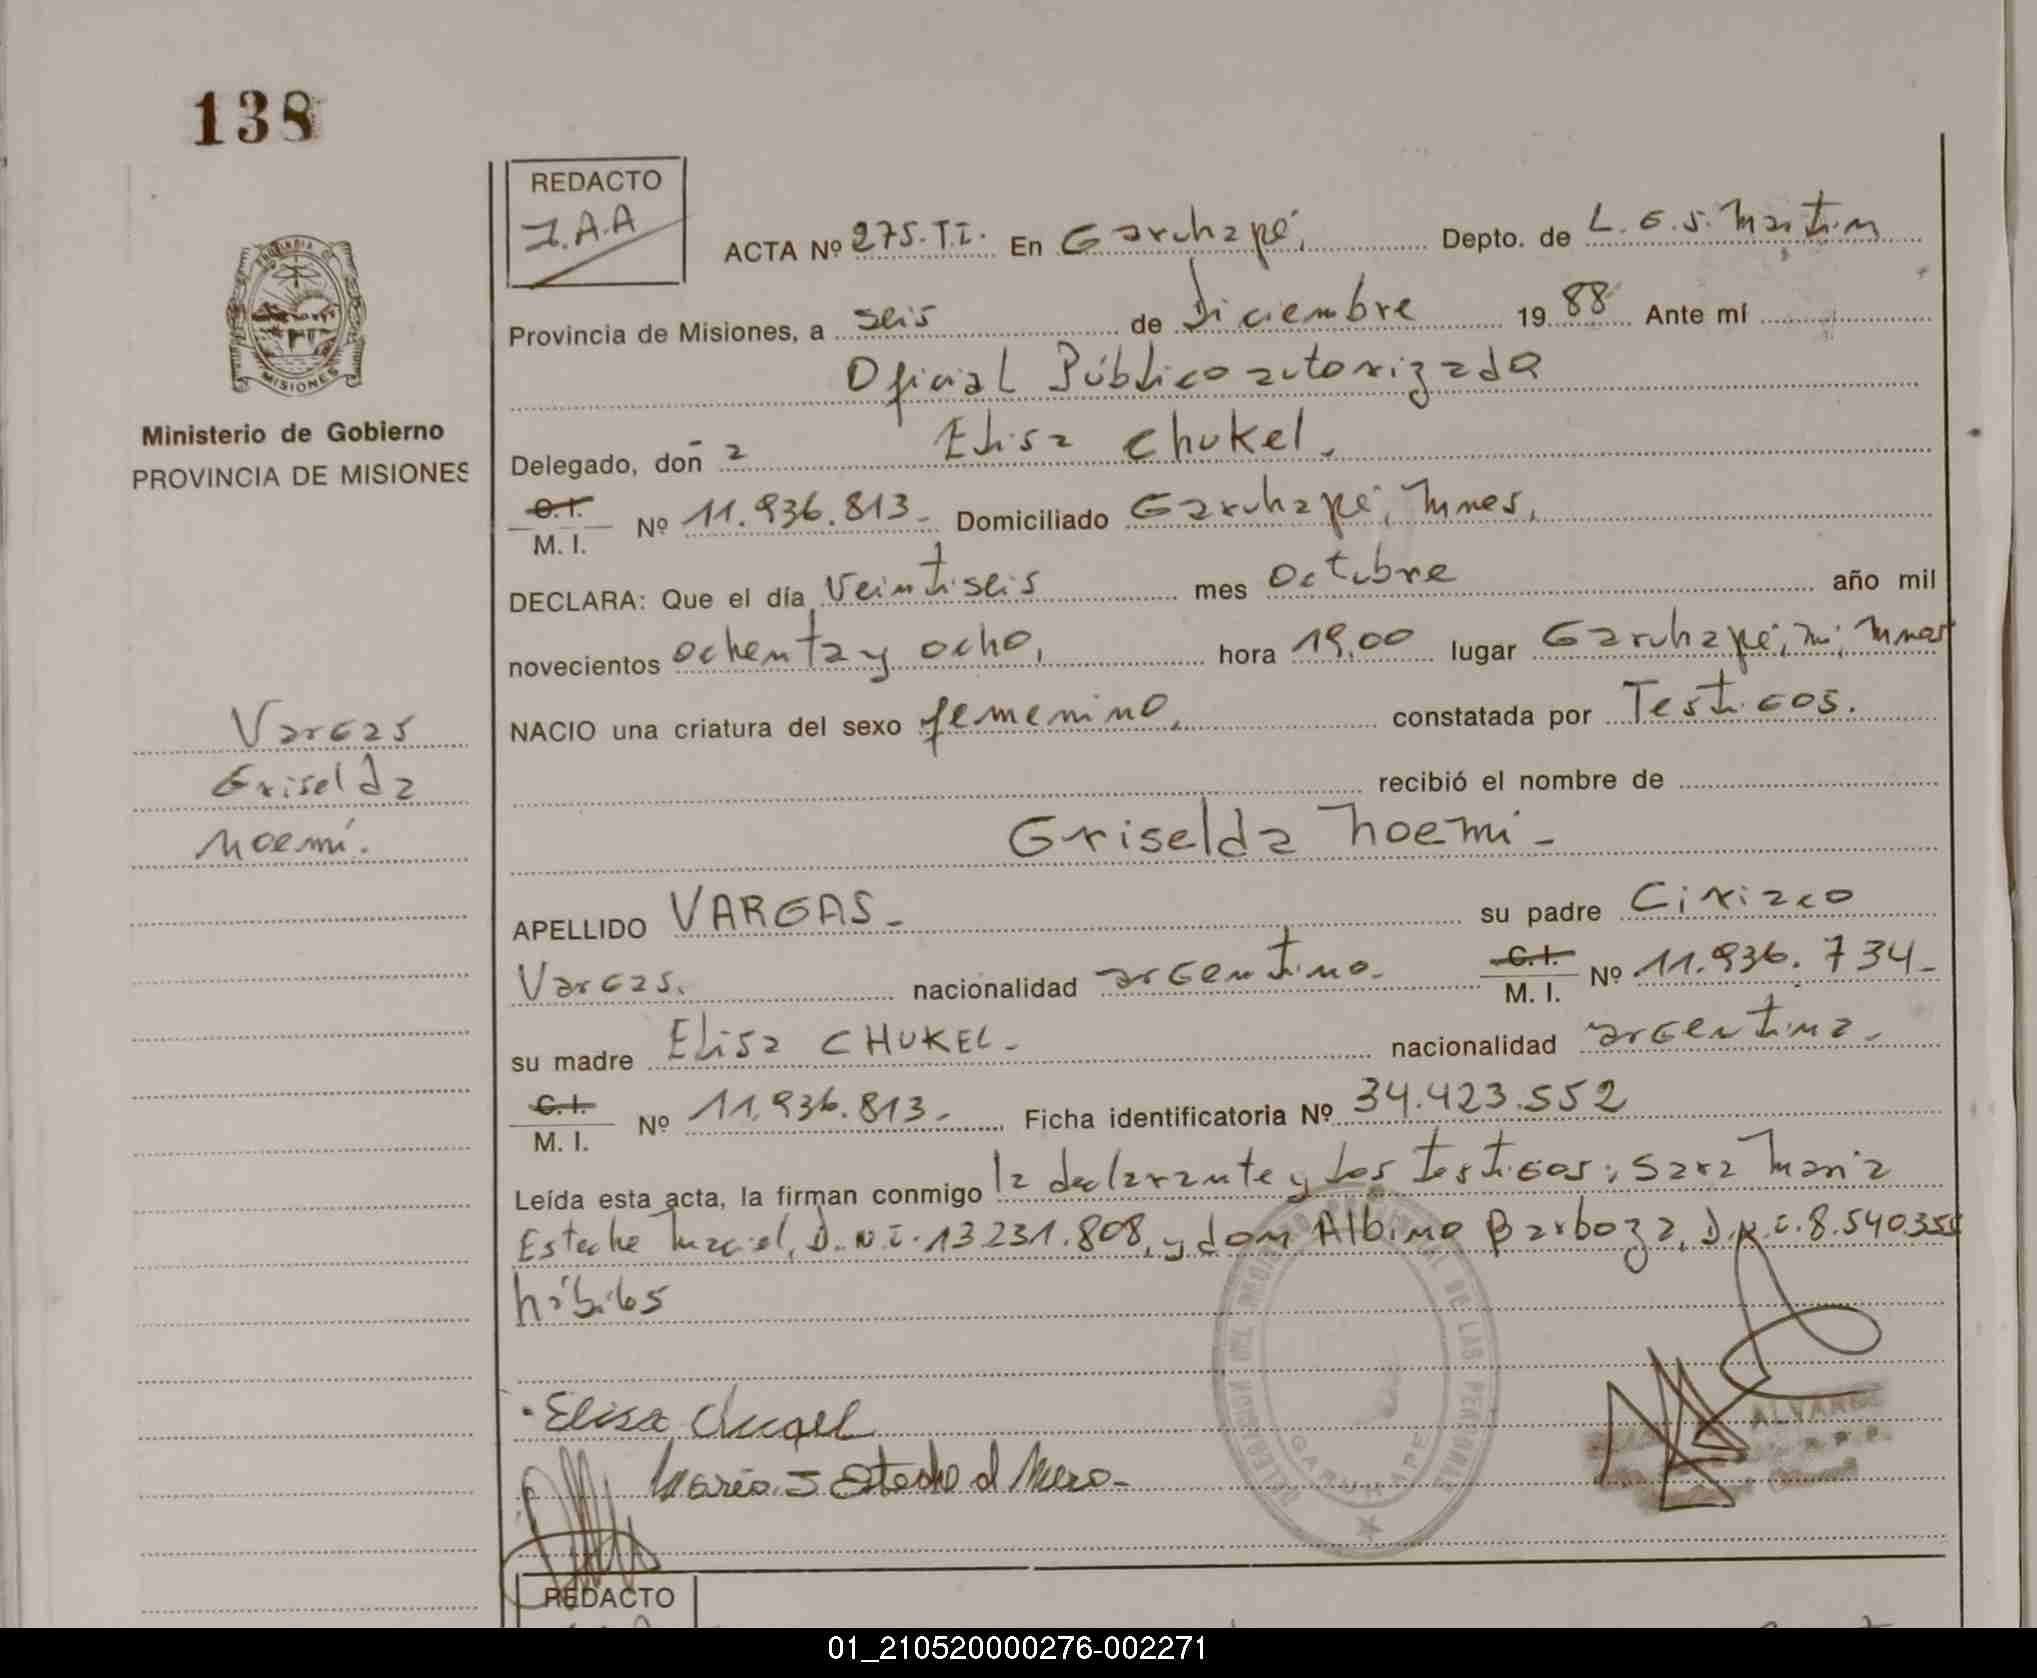 138
REDACTO
I.A.A
ACTA Nº 275.T.I. En Garuhapé, Depto. de L.G.S. Martin
Provincia de Misiones, a seis de Diciembre 19 88 Ante mí
Oficial Público autorizado
Delegado, doñ a Elisa Chukel.
C.I. M. I. Nº 11.936.813.- Domiciliado Garuhapé, Mnes,
DECLARA: Que el día Veintiseis mes Octubre año mil
novecientos ochenta y ocho, hora 19,00 lugar Garuhapé, Mnes
NACIO una criatura del sexo femenino, constatada por Testigos.
recibió el nombre de
Griselda Noemi -
APELLIDO VARGAS - su padre Ciriaco
Vargas. nacionalidad argentino. C.I. M. I. Nº 11.936.734-
su madre Elisa CHUKEL - nacionalidad argentina -
C.I. M. I. Nº 11.936.813- Ficha identificatoria Nº 34.423.552
Leída esta acta, la firman conmigo la declarante y los testigos: Sara Maria
Esteche Maciel, D.N.I. 13.231.808, y don Albino Barboza, D.N.I. 8.540.355
hábiles
Elisa Chuqel
Ministerio de Gobierno
PROVINCIA DE MISIONES
MISIONES
Vargas
Griselda
Noemí.
DELEGACION DEL REGISTRO PROVINCIAL DE LAS PERSONAS
GARUHAPE
REDACTO
01_210520000276-002271